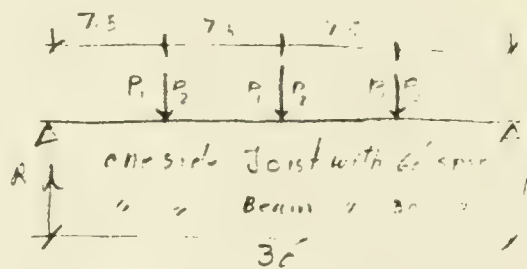 7.5 7.5 7.5
P₁ P₂ P₁ P₂ P₁ P₂
one side Joist with 60' span
R
" " Beam " 30 "
30'